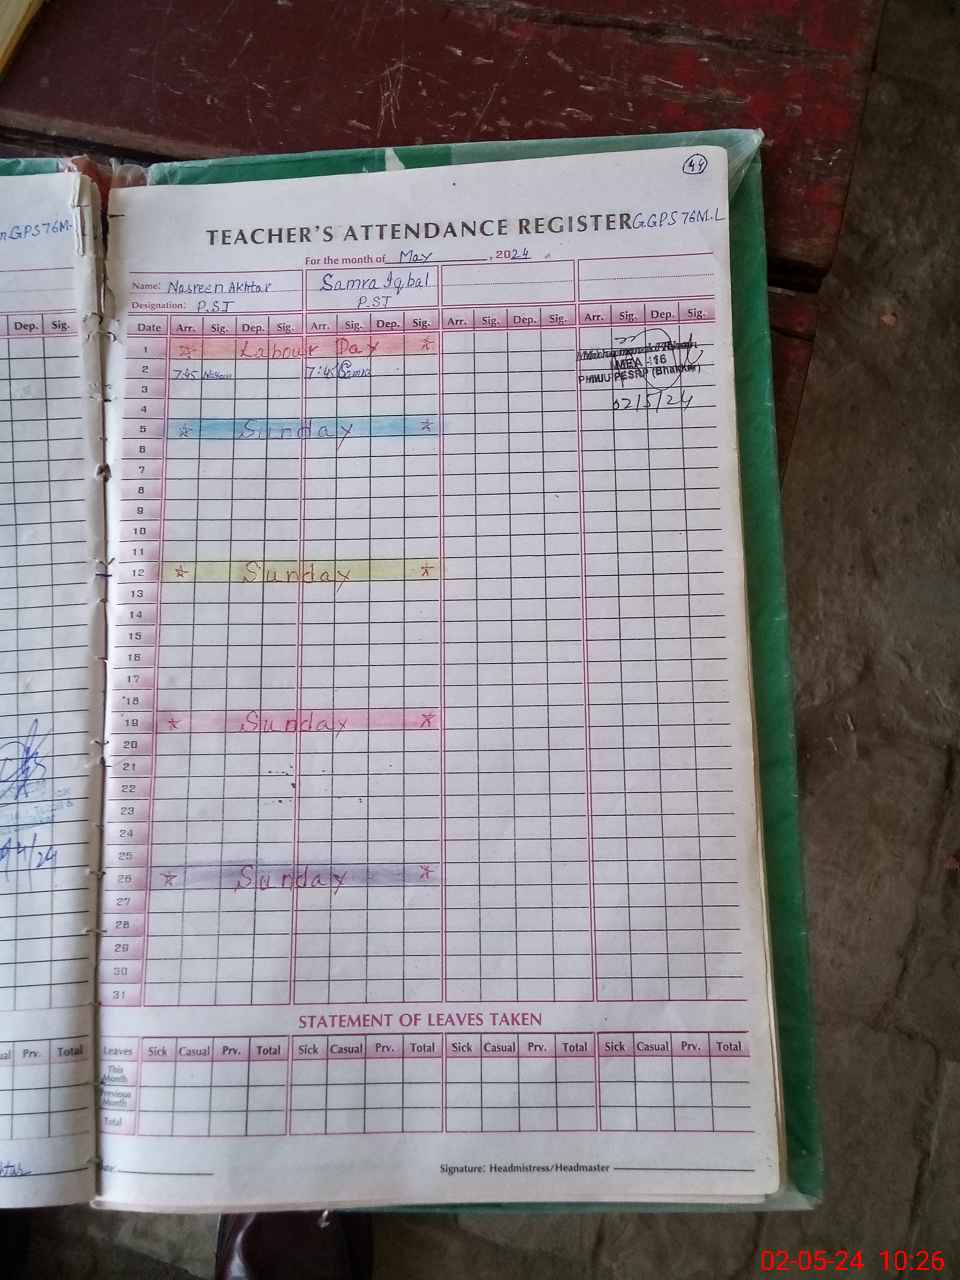 44
GPS 76M.L
TEACHER'S ATTENDANCE REGISTER G.G.P.S 76M.L
For the month of May, 2024
Name: Nasreen Akhtar Samra Iqbal
Designation: P.ST P.ST
Dep. Sig.
Date Arr. Sig. Dep. Sig. Arr. Sig. Dep. Sig. Arr. Sig. Dep. Sig. Arr. Sig. Dep. Sig.
1 Labour Day
2 7:45 7:45 Samra
MEA - 16
PMIU PESRP (Bhakkar)
3
4 02/5/24
5 Sunday
6
7
8
9
10
11
12 Sunday
13
14
15
16
17
18
19 Sunday
20
21
22
23
24
25
26 Sunday
27
28
29
30
31
STATEMENT OF LEAVES TAKEN
Prv. Total
Leaves Sick Casual Prv. Total Sick Casual Prv. Total Sick Casual Prv. Total Sick Casual Prv. Total
This Month
Previous Month
Total
Date:
Signature: Headmistress/Headmaster
02-05-24 10:26